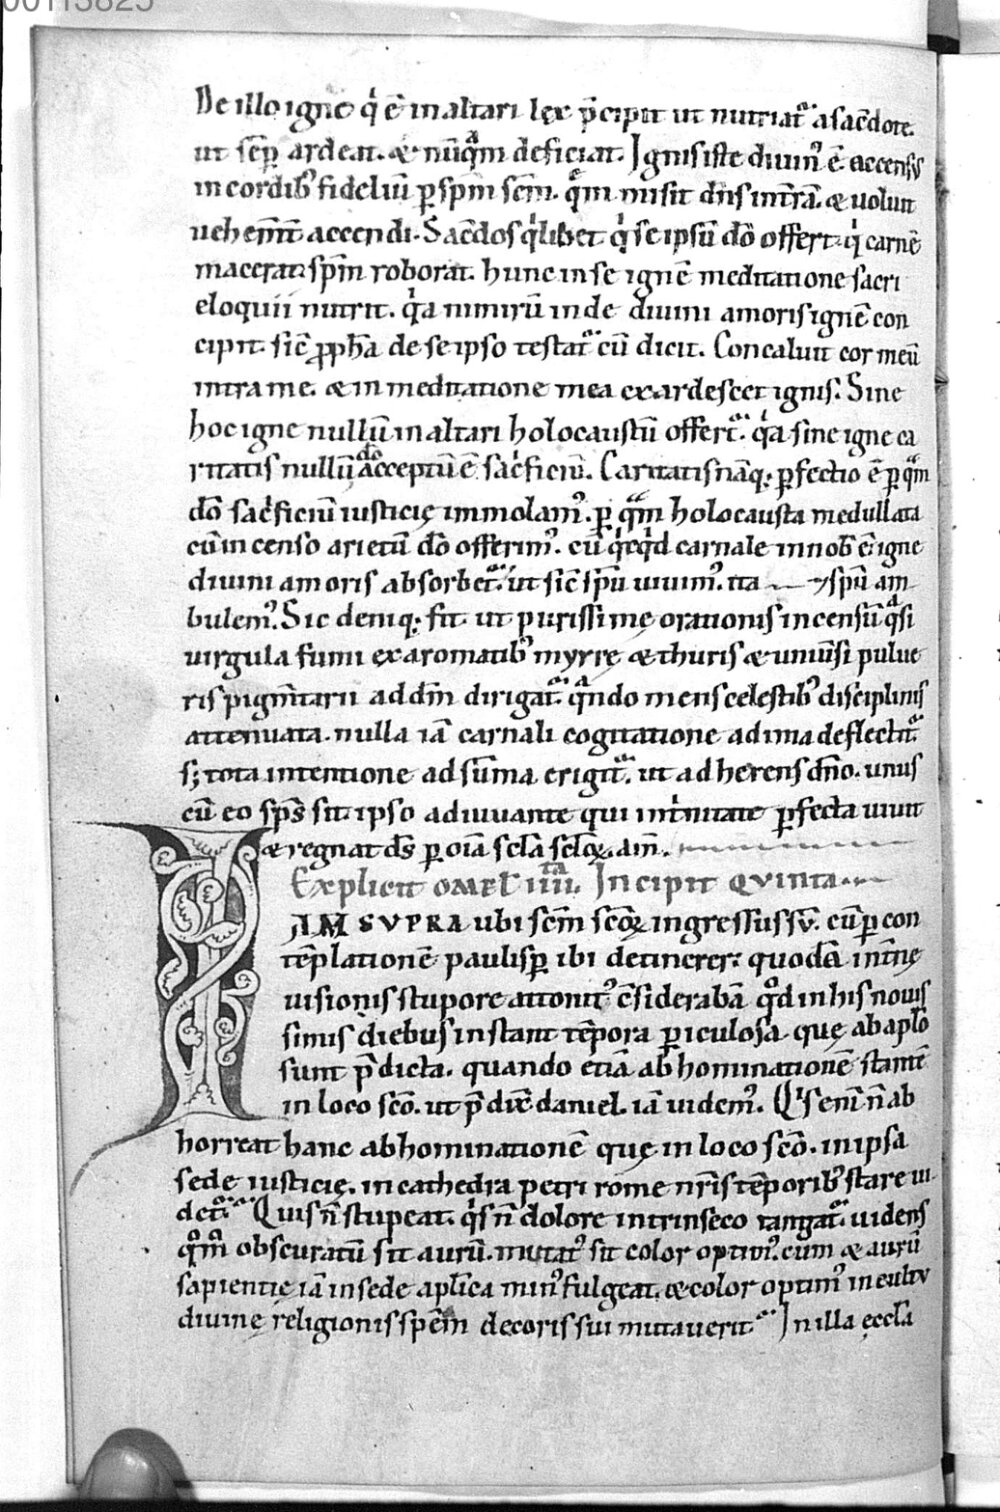 00113825
De illo igne q̇ ē in altari lex p̄cipit ut nutriat᷑ a sac̄dote.
ut sēp ardeat. & nūq̄m deficiat. Ignis iste diuin᷒ ē accensus
in cordib᷒ fideliū ꝑ sp̄m sc̄m. q̄m misit dn̄s in t̄rā. & uoluit
uehem̄t accendi. Sac̄dos q̇libet q̇ se ipsū dō offert. q̇ carnē
macerat. sp̄m roborat. hunc in se ignē meditatione sacri
eloquii nutrit. q̇a nimirū inde diuini amoris ignē con
cipit. sic̄ ꝓph̄a de se ipso testat᷑ cū dicit. Concaluit cor meū
intra me. & in meditatione mea exardescet ignis. Sine
hoc igne nullū in altari holocaustū offert᷑. q̇a sine igne ca
ritatis nullū dō acceptū ē saċficiū. Caritatis nāq; ꝑfectio ē ꝑ q̄m
dō saċficiū iusticię immolam᷒. ꝑ q̄m holocausta medullata
cū incenso arietū dō offerim᷒. cū q̇cq̇d carnale in nob̄ ē. igne
diuini amoris absorbet᷑. ut sic̄ sp̄u uiuim᷒. ita & sp̄u am
bulem᷒. Sic deniq; fit ut purissimę orationis incensū q̄si
uirgula fumi ex aromatib᷒ myrrę & thuris & uniūsi pulue
ris pigm̄tarii ad dm̄ dirigat᷑. q̄ndo mens celestib᷒ disciplinis
attenuata. nulla iā carnali cogitatione ad ima deflectit᷑.
s; tota intentione ad sūma erigit᷑. ut adherens dn̄o. unus
cū eo sp̄s sit. ipso adiuuante qui in ṫnitate ꝑfecta uiuit
& regnat ds̄ ꝑ oīa scl̄a scl̄oꝝ. am̄.
Explicit omel̄ iiii.ta Incipit quinta.
IAM SVPRA ubi sc̄m sc̄oꝝ ingressus sū. cū ꝑ con
tēplationē paulisꝑ ibi detinerer. quodā int̄nę
uisionis stupore attonit᷒ c̄siderabā q̊d in his nouis
simis diebus instant tēpora ꝑiculosa. quę ab apl̄o
sunt p̄dicta. quando etiā abhominationē stantē
in loco sc̄o. ut p̄dix̄ daniel. iā uidem᷒. Q̇s enī n̄ ab
horreat hanc abhominationē quę in loco sc̄o. in ipsa
sede iusticię. in cathedra petri rome nr̄is tēporib᷒ stare ui
det᷑. Quis n̄ stupeat. q̇s n̄ dolore intrinseco tangat᷑. uidens
q̊m̄ obscuratū sit aurū. mutat᷒ sit color optim᷒. cum & aurū
sapientię iā in sede apl̄ica min᷒ fulgeat. & color optim᷒ in cultu
diuinę religionis spēm decoris sui mutauerit. In illa ęccl̄a